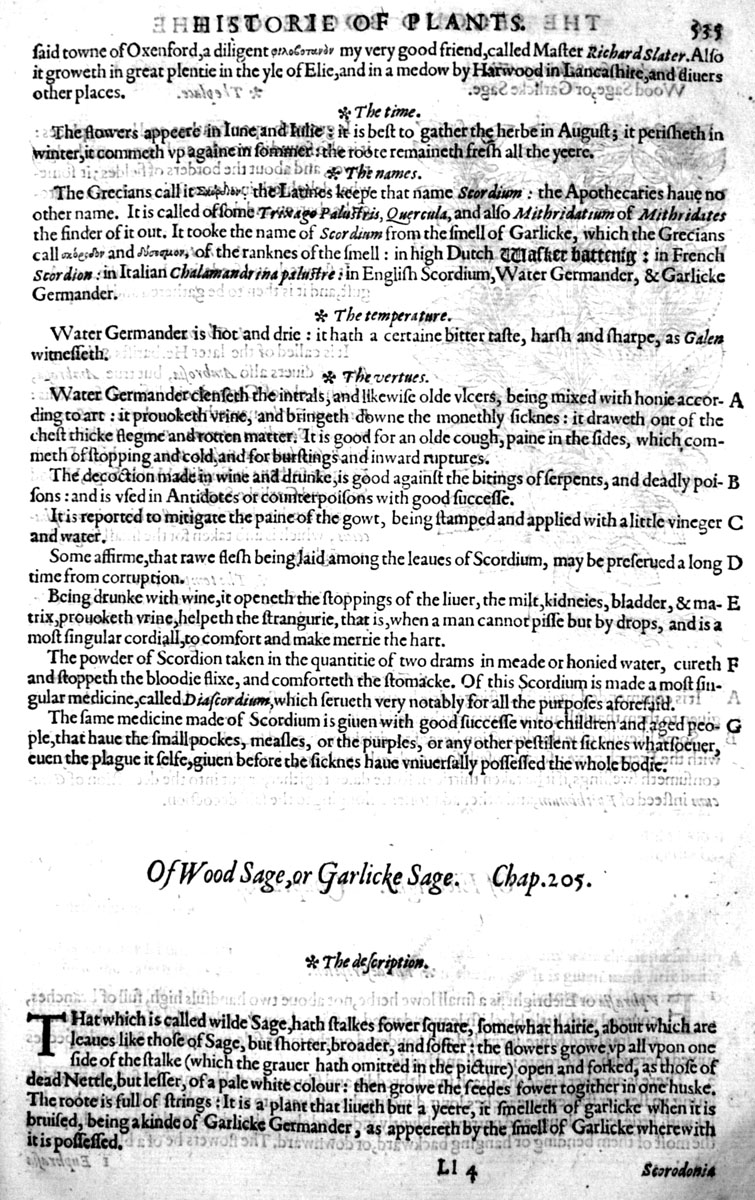 HISTORIE OF PLANTS. 535
ſaid towne of Oxenford, a diligent my very good friend, called Maſter Richard Slater. Alſo
it groweth in great plentie in the yle of Elie, and in a medow by Harwood in Lancaſhire, and diuers
other places.
✻ The time.
The flowers appeere in Iune and Iulie: it is beſt to gather the herbe in Auguſt; it periſheth in
winter, it commeth vp againe in ſommer: the roote remaineth freſh all the yeere.
✻ The names.
The Grecians call it the Latines keepe that name Scordium: the Apothecaries haue no
other name. It is called of ſome Trixago Paluſtris, Quercula, and also Mithridatium of Mithridates
the finder of it out. It tooke the name of Scordium from the ſmell of Garlicke, which the Grecians
call and of the ranknes of the ſmell: in high Dutch Waſſer battenig: in French
Scordion: in Italian Chalamandrina paluſtre: in Engliſh Scordium, Water Germander, & Garlicke
Germander.
✻ The temperature.
Water Germander is hot and drie: it hath a certaine bitter taſte, harſh and ſharpe, as Galen
witneſſeth.
✻ The vertues.
Water Germander clenſeth the intrals, and likewiſe olde vlcers, being mixed with honie accor- A
ding to art: it prouoketh vrine, and bringeth downe the monethly ſicknes: it draweth out of the
cheſt thicke flegme and rotten matter. It is good for an olde cough, paine in the ſides, which com-
meth of ſtopping and cold, and for burſtings and inward ruptures.
The decoction made in wine and drunke, is good againſt the bitings of ſerpents, and deadly poi- B
ſons: and is vſed in Antidotes or counterpoiſons with good ſucceſſe.
It is reported to mitigate the paine of the gowt, being ſtamped and applied with a little vineger C
and water.
Some affirme, that rawe fleſh being laid among the leaues of Scordium, may be preſerued a long D
time from corruption.
Being drunke with wine, it openeth the ſtoppings of the liuer, the milt, kidneies, bladder, & ma- E
trix, prouoketh vrine, helpeth the ſtrangurie, that is, when a man cannot piſſe but by drops, and is a
moſt ſingular cordiall, to comfort and make merrie the hart.
The powder of Scordion taken in the quantitie of two drams in meade or honied water, cureth F
and ſtoppeth the bloodie flixe, and comforteth the ſtomacke. Of this Scordium is made a moſt ſin-
gular medicine, called Diaſcordium, which ſerueth very notably for all the purpoſes aforeſaid.
The ſame medicine made of Scordium is giuen with good ſucceſſe vnto children and aged peo- G
ple, that haue the ſmall pockes, meaſles, or the purples, or any other peſtilent ſicknes whatſoeuer,
euen the plague it ſelfe, giuen before the ſicknes haue vniuerſally poſſeſſed the whole bodie.
Of Wood Sage, or Garlicke Sage. Chap. 205.
✻ The deſcription.
THat which is called wilde Sage, hath ſtalkes fower ſquare, ſomewhat hairie, about which are
leaues like thoſe of Sage, but ſhorter, broader, and ſofter: the flowers growe vp all vpon one
ſide of the ſtalke (which the grauer hath omitted in the picture) open and forked, as thoſe of
dead Nettle, but leſſer, of a pale white colour: then growe the ſeedes fower togither in one huske.
The roote is full of ſtrings: It is a plant that liueth but a yeere, it ſmelleth of garlicke when it is
bruiſed, being a kinde of Garlicke Germander, as appeereth by the ſmell of Garlicke wherewith
it is poſſeſſed.
Ll 4 Scorodonia